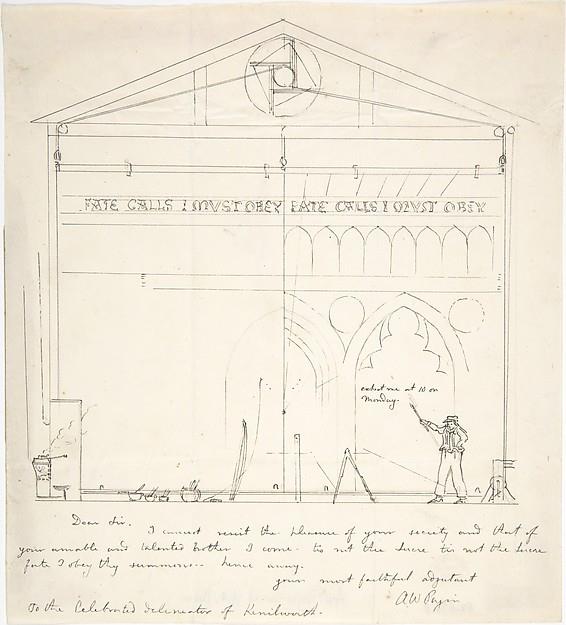 FATE CALLS I MUST OBEY FATE CALLS I MUST OBEY
exhort me at 10 on
Monday.
Dear Sir. I cannot resist the pleasure of your society and that of
your amiable and talented brother I come - tis not the lucre tis not the lucre
fate I obey thy summons -- hence away.
your most faithful adjutant
A W Pugin
To the Celebrated delineator of Kenilworth.